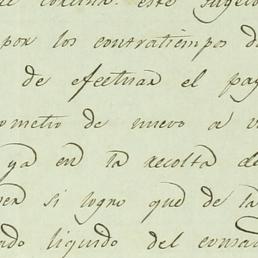 este sugeto
por los contratiempos d
de efectuar el pag
ometio de nuevo a v
ya en la recolta de
ver si logro que de la
ado liquido del consu